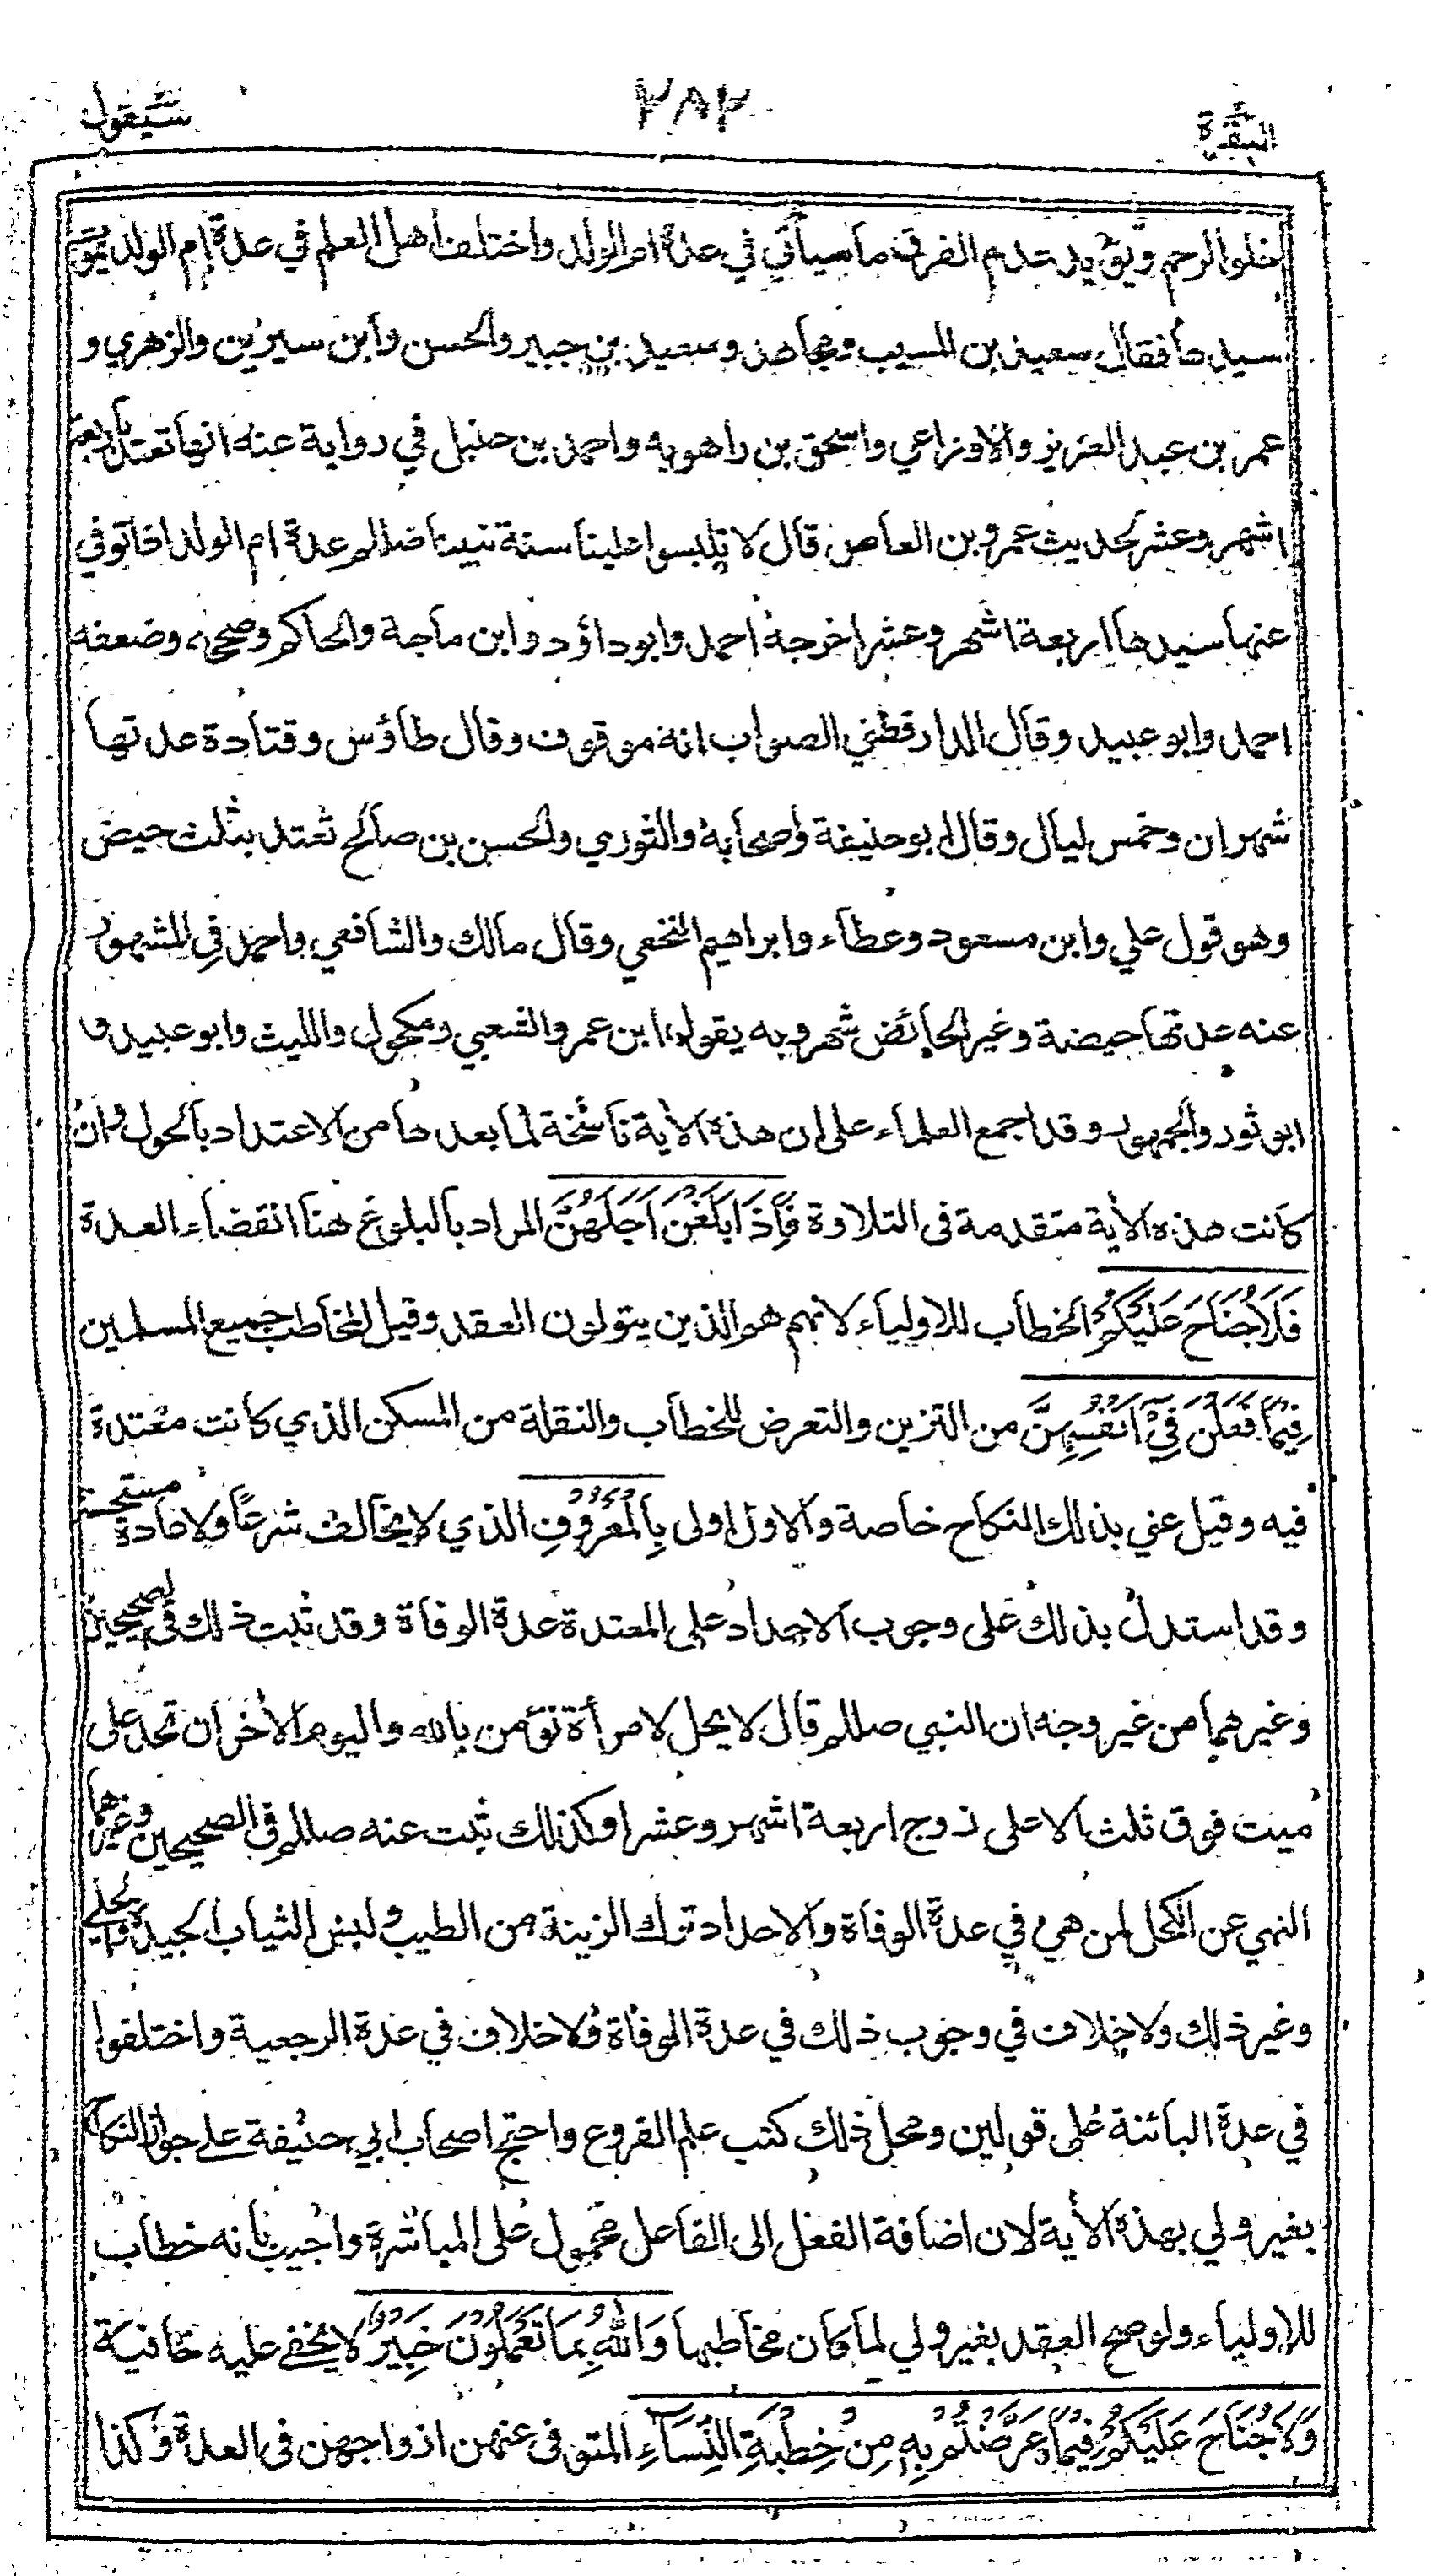 البقرة
٢٨٢
سيقول
لخلو الرحم ويؤيد عدم الفرق ما سيأتي في عدة ام الولد واختلف اهل العلم في عدة ام الولد يموت
سيدها فقال سعيد بن المسيب ومجاهد وسعيد بن جبير والحسن وابن سيرين والزهري و
عمر بن عبد العزيز والاوزاعي واسحق بن راهويه واحمد بن حنبل في رواية عنه انها تعتد باربعة
اشهر وعشر لحديث عمرو بن العاص قال لا تلبسوا علينا سنة نبينا صللم عدة ام الولد اذا توفي
عنها سيدها اربعة اشهر وعشرا خرجه احمد وابو داؤد وابن ماجة والحاكم وصححه وضعفه
احمد وابو عبيد وقال الدارقطني الصواب انه موقوف وقال طاؤس وقتادة عدتها
شهران وخمس ليال وقال ابو حنيفة واصحابه والثوري والحسن بن صالح تعتد بثلث حيض
وهو قول علي وابن مسعود وعطاء وابراهيم النخعي وقال مالك والشافعي واحمد في المشهور
عنه عدتها حيضة وغير الحائض شهر وبه يقول ابن عمر والشعبي ومكحول والليث وابو عبيد و
ابو ثور والجمهور وقد اجمع العلماء على ان هذه الاية ناسخة لما بعدها من الاعتداد بالحول وان
كانت هذه الاية متقدمة في التلاوة فَاِذَا بَلَغْنَ اَجَلَهُنَّ المراد بالبلوغ هنا انقضاء العدة
فَلَا جُنَاحَ عَلَيْكُمْ الخطاب للاولياء لانهم هم الذين يتولون العقد وقيل المخاطب جميع المسلمين
فِيْمَا فَعَلْنَ فِيْ اَنْفُسِهِنَّ من التزين والتعرض للخطاب والنقلة من المسكن الذي كانت معتدة
فيه وقيل عني بذلك النكاح خاصة والاول اولى بِالْمَعْرُوْفِ الذي لا يخالف شرعا ولا عادة مستحسنة
وقد استدل بذلك على وجوب الاحداد على المعتدة عدة الوفاة وقد ثبت ذلك في الصحيحين
وغيرهما من غير وجه ان النبي صللم قال لا يحل لامرأة تؤمن بالله واليوم الاخر ان تحد على
ميت فوق ثلث الا على زوج اربعة اشهر وعشرا وكذلك ثبت عنه صللم في الصحيحين وغيرهما
النهي عن الكحل لمن هي في عدة الوفاة والاحداد ترك الزينة من الطيب ولبس الثياب الجيدة والحلي
وغير ذلك ولا خلاف في وجوب ذلك في عدة الوفاة ولا خلاف في عدة الرجعية واختلفوا
في عدة البائنة على قولين ومحل ذلك كتب علم الفروع واحتج اصحاب ابي حنيفة على جواز النكاح
بغير ولي بهذه الاية لان اضافة الفعل الى الفاعل محمول على المباشرة واجيب بانه خطاب
للاولياء ولو صح العقد بغير ولي لما كان مخاطبا وَاللهُ بِمَا تَعْمَلُوْنَ خَبِيْرٌ لا يخفى عليه خافية
وَلَا جُنَاحَ عَلَيْكُمْ فِيْمَا عَرَّضْتُمْ بِهٖ مِنْ خِطْبَةِ النِّسَآءِ المتوفى عنهن ازواجهن في العدة وكذا